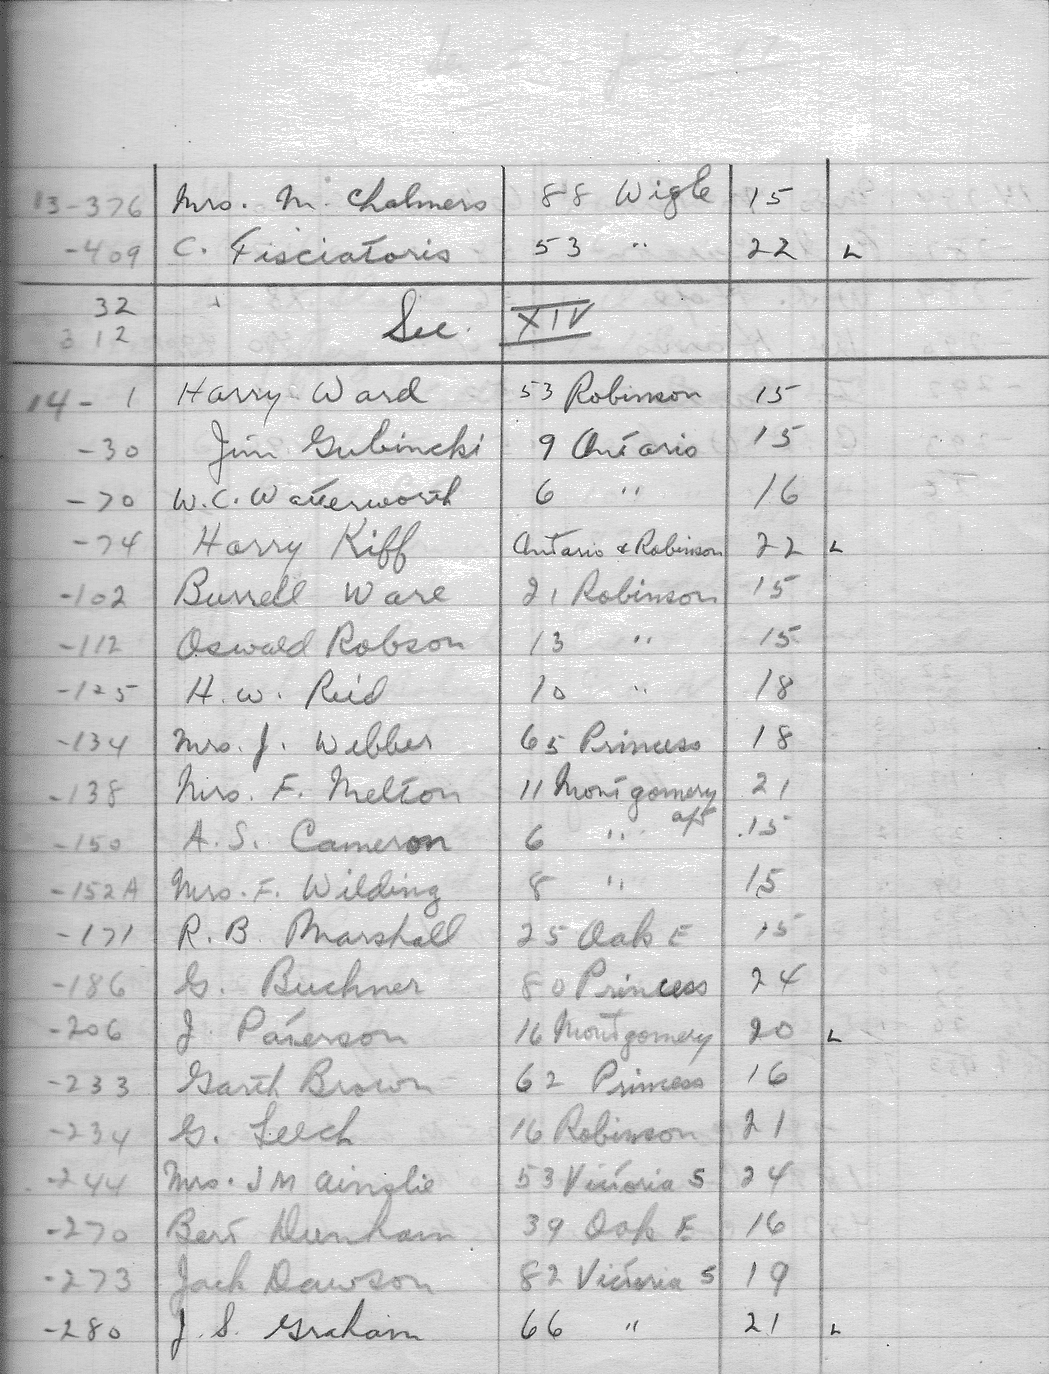 13-376 Mrs. M. Chalmers 88 Wigle 15
-409 C. Fisciatoris 53 " 22 L
32
312 Sec. XIV
14-1 Harry Ward 53 Robinson 15
-30 Jim Gubincki 9 Ontario 15
-70 W.C. Watterworth 6 " 16
-74 Harry Kiff Ontario & Robinson 22 L
-102 Burrell Ware 21 Robinson 15
-112 Oswald Robson 13 " 15
-125 H.W. Reid 10 " 18
-134 Mrs. J. Webber 65 Princess 18
-138 Mrs. F. Melton 11 Montgomery 21
-150 A.S. Cameron 6 " 15
-152A Mrs. F. Wilding 8 " 15
-171 R.B. Marshall 25 Oak E 15
-186 G. Buchner 80 Princess 24
-206 J. Paterson 16 Montgomery 20 L
-233 Garth Brown 62 Princess 16
-234 G. Leech 16 Robinson 21
-244 Mrs. J M Ainslie 53 Victoria S 24
-270 Bert Dunham 39 Oak E 16
-273 Jack Dawson 82 Victoria S 19
-280 J.S. Graham 66 " 21 L